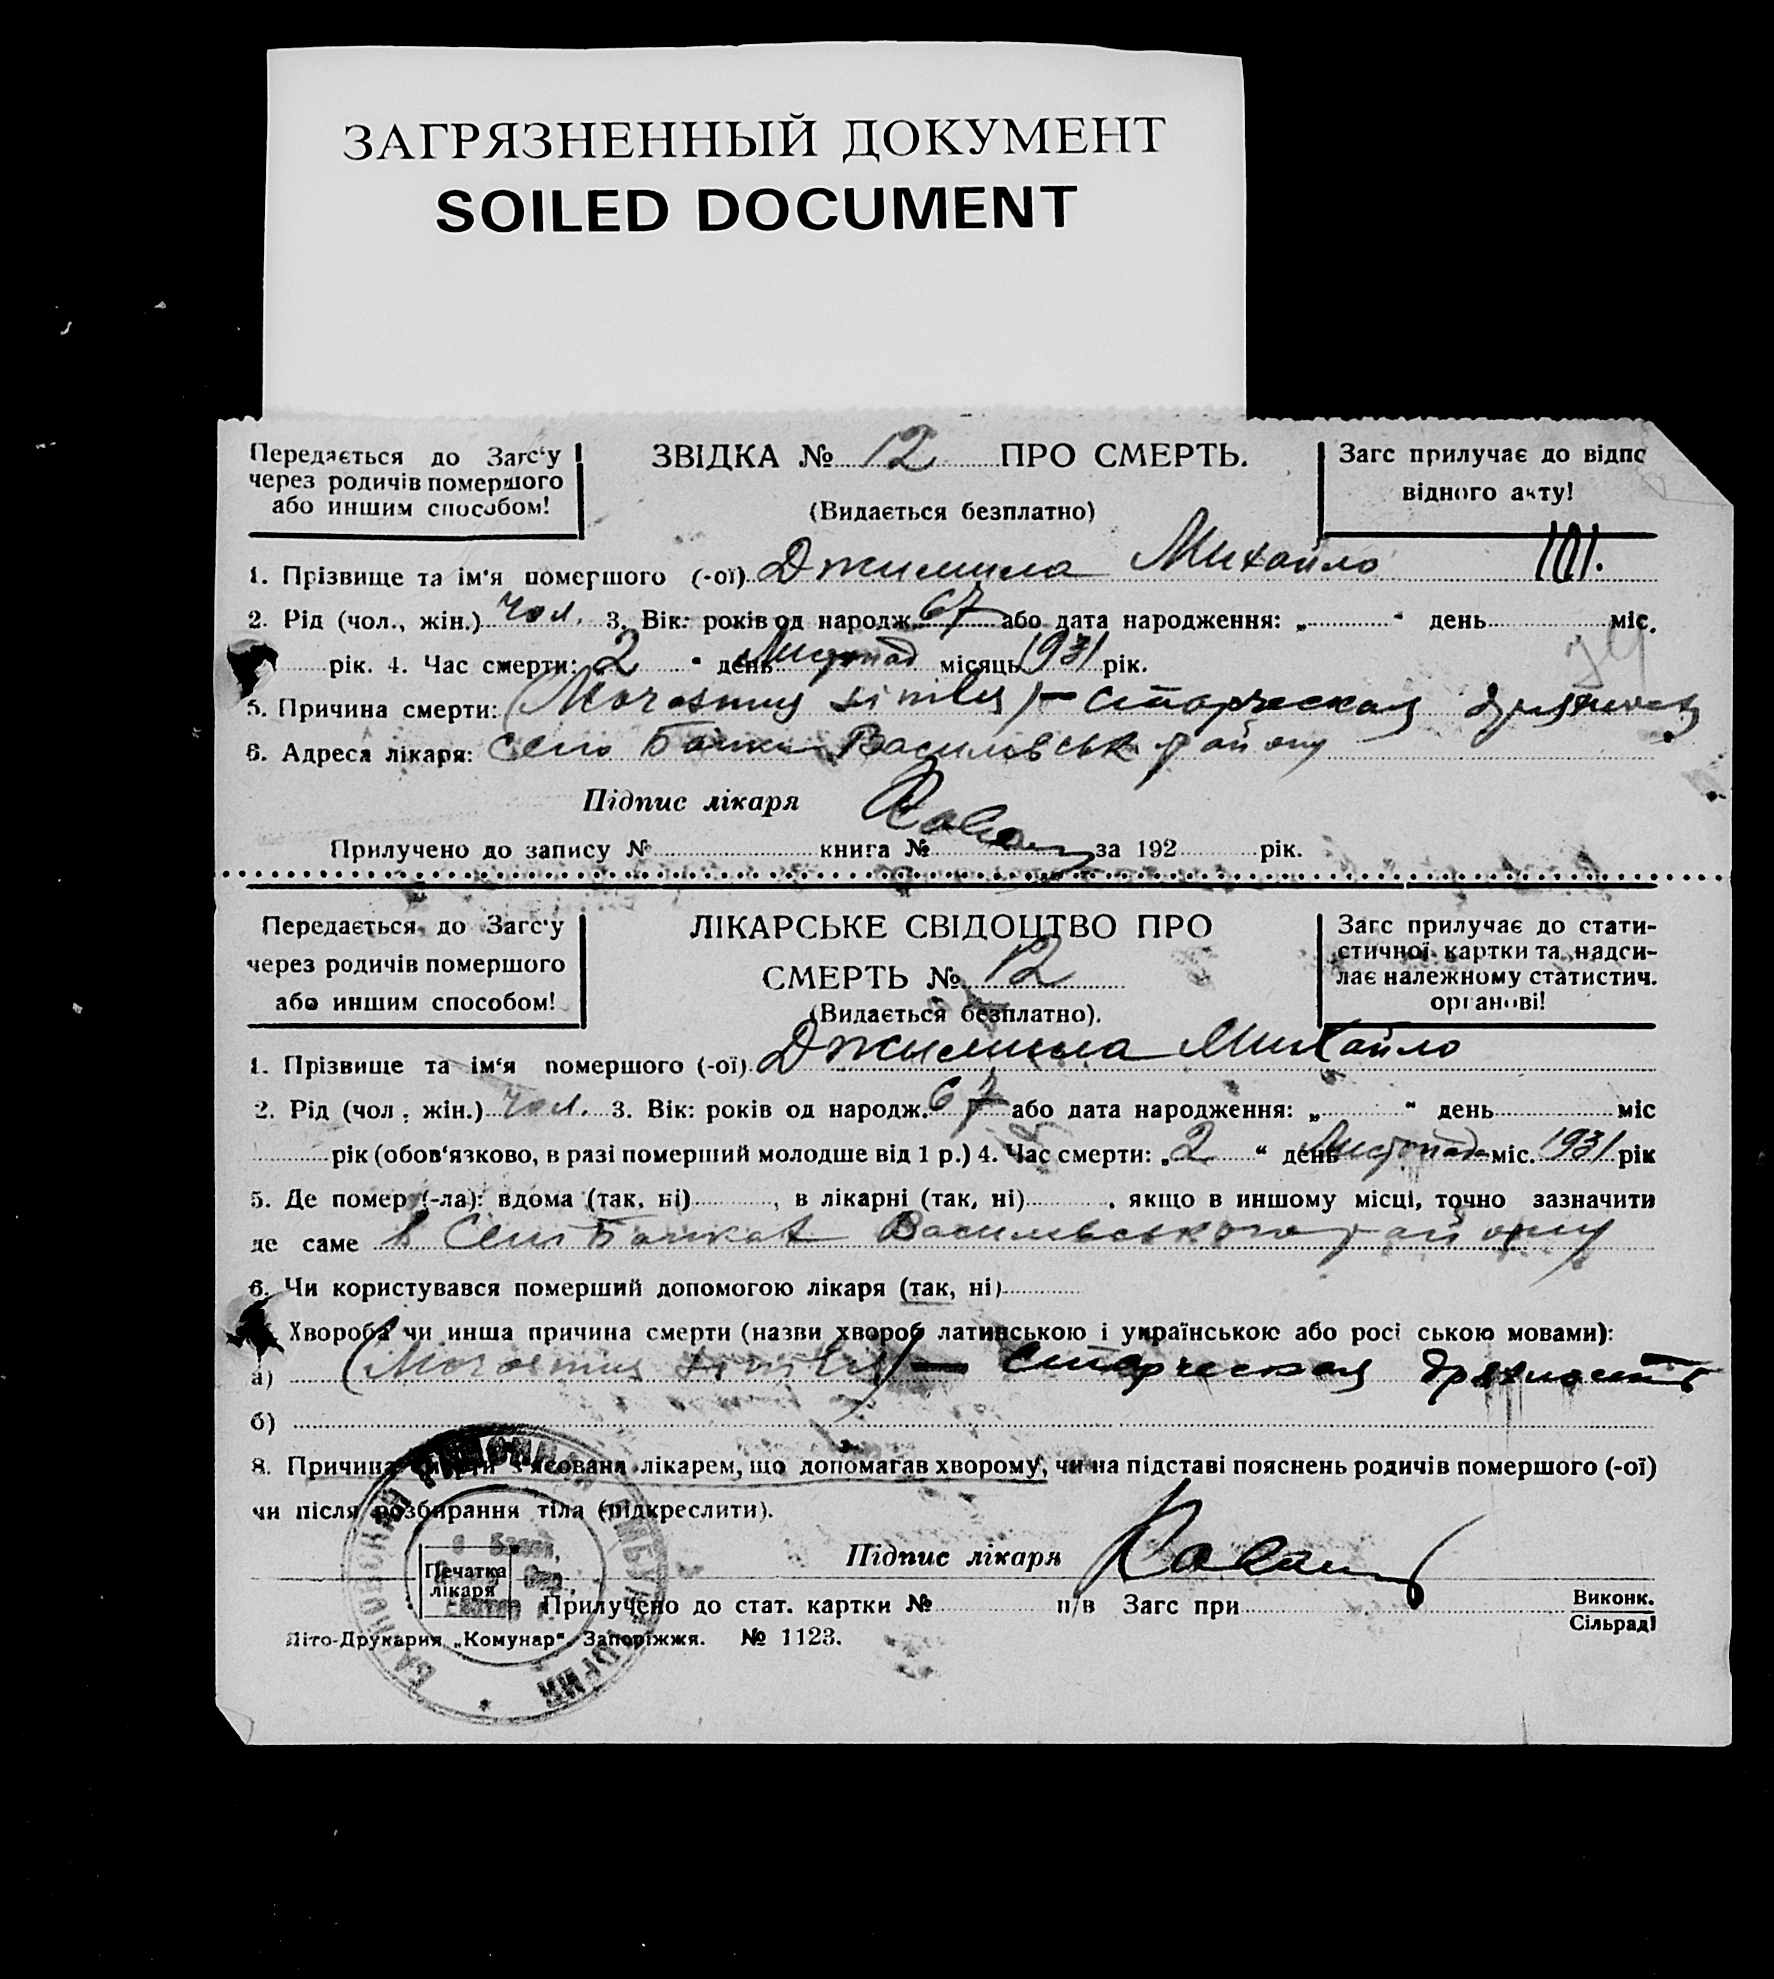 ЗАГРЯЗНЕННЫЙ ДОКУМЕНТ
SOILED DOCUMENT
Передається до Загс‘у
через родичів помершого
або иншим способом!
ЗВІДКА № 12 ПРО СМЕРТЬ.
(Видається безплатно)
Загс прилучає до відпо
відного акту!
101.
1. Прізвище та ім'я помершого (-ої) Джимила Михайло
2. Рід (чол., жін.) чол. 3. Вік: років од народж. 67 або дата народження: „ “ день міс.
рік. 4. Час смерти: 2 “ день Листопад місяць 1931 рік.
5. Причина смерти: (Morasmus sinilis) — старческая дряхлость
6. Адреса лікаря: село Балки Василівськ району
Підпис лікаря
Прилучено до запису № книга № за 192 рік.
Передається до Загс‘у
через родичів помершого
або иншим способом!
ЛІКАРСЬКЕ СВІДОЦТВО ПРО
СМЕРТЬ № 12
(Видається безплатно).
Загс прилучає до стати-
стичної картки та надси-
лає належному статистич.
органові!
1. Прізвище та ім‘я помершого (-ої) Джимила Михайло
2. Рід (чол., жін.) чол. 3. Вік: років од народж. 67 або дата народження: „ “ день міс
рік (обов‘язково, в разі померший молодше від 1 р.) 4. Час смерти: „ 2 “ день Листопад міс. 1931 рік
5. Де помер (-ла): вдома (так, ні) , в лікарні (так, ні) , якщо в иншому місці, точно зазначити
де саме в Селі Балках Василівського району
6. Чи користувався померший допомогою лікаря (так, ні)
Хвороба чи инша причина смерти (назви хвороб латинською і українською або росі ською мовами):
а) (Morasmus sinilis) — старческая дряхлость
б)
8. Причина смерти з‘ясована лікарем, що допомагав хворому, чи на підставі пояснень родичів помершого (-ої)
чи після розбирання тіла (підкреслити).
Підпис лікаря
Печатка
лікаря
Прилучено до стат. картки № п/в Загс при Виконк.
Сільраді
Літо-Друкарня „Комунар“ Запоріжжя. № 1123.